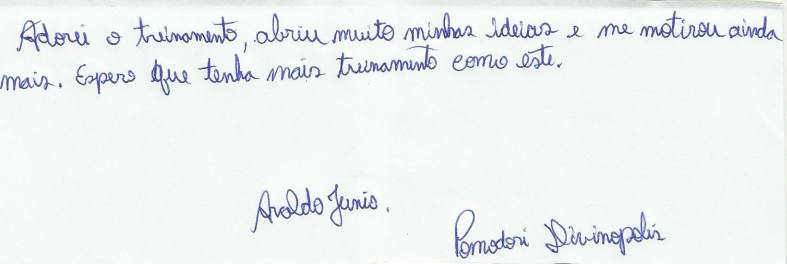 Adorei o treinamento, abriu muito minhas ideias e me motivou ainda
mais. Espero que tenha mais treinamento como este.
Aroldo Junio.
Pomodori Divinopolis